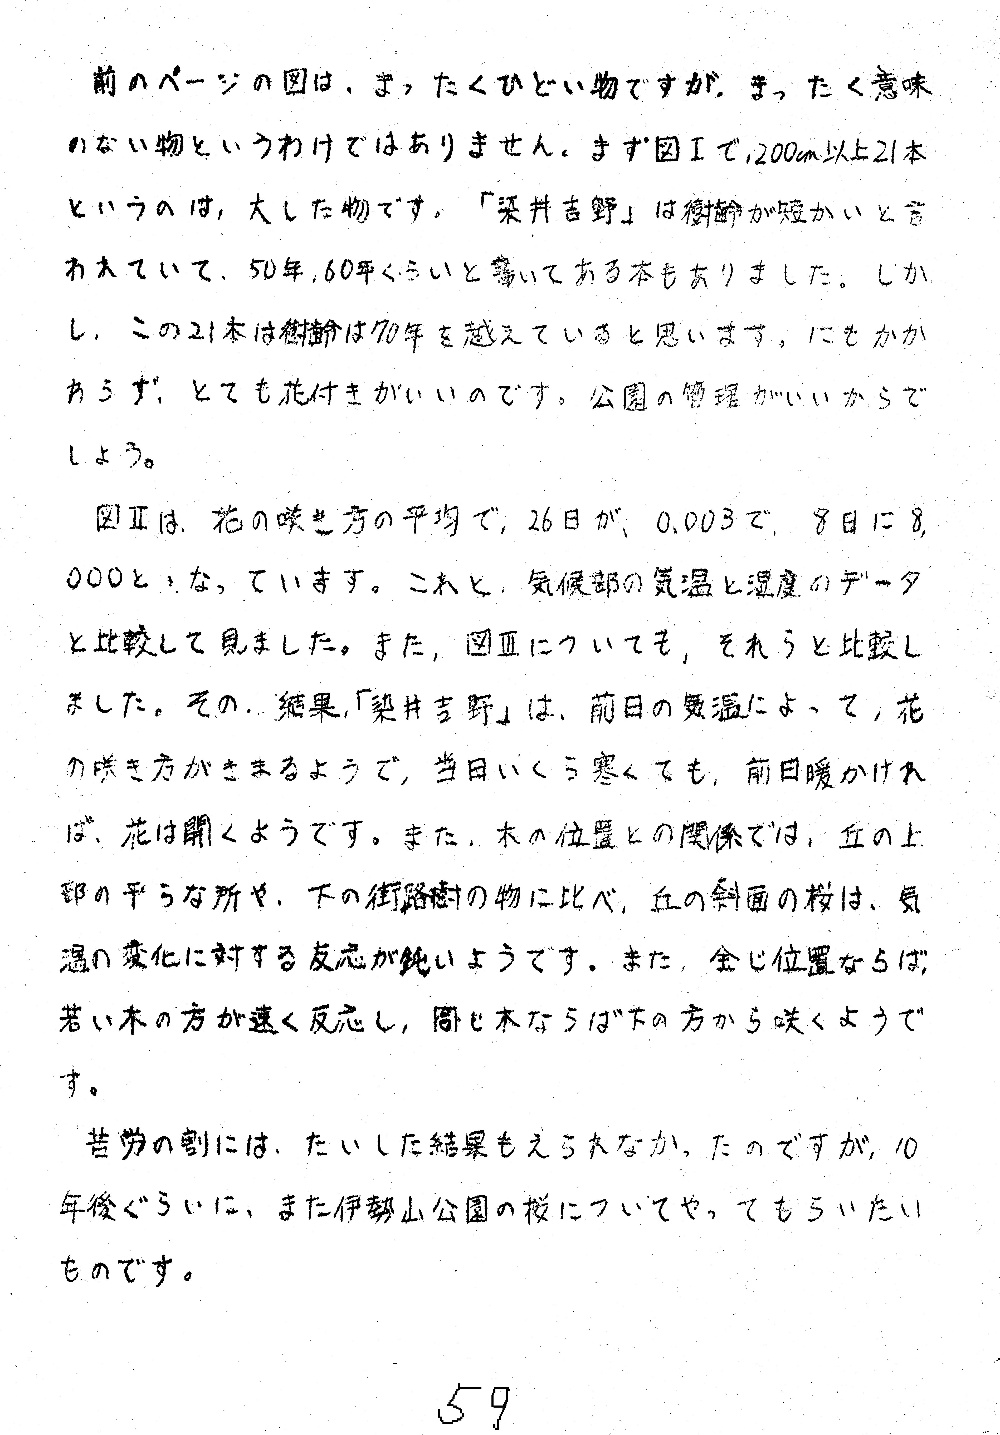 前のページの図は、まったくひどい物ですが、まったく意味
のない物というわけではありません。まず図Ⅰで、200cm以上21本
というのは、大した物です。「染井吉野」は樹齢が短かいと言
われていて、50年、60年くらいと書いてある本もありました。しか
し、この21本は樹齢は70年を越えていると思います。にもかか
わらず、とても花付きがいいのです。公園の管理がいいからで
しょう。
図Ⅱは、花の咲き方の平均で、26日が、0.003で、8日に8,
000と、なっています。これと、気候部の気温と湿度のデータ
と比較して見ました。また、図Ⅲについても、それらと比較し
ました。その、結果、「染井吉野」は、前日の気温によって、花
の咲き方がきまるようで、当日いくら寒くても、前日暖かけれ
ば、花は開くようです。また、木の位置との関係では、丘の上
部の平らな所や、下の街路樹の物に比べ、丘の斜面の桜は、気
温の変化に対する反応が鈍いようです。また、仝じ位置ならば、
若い木の方が速く反応し、同じ木ならば下の方から咲くようで
す。
苦労の割には、たいした結果もえられなかったのですが、10
年後ぐらいに、また伊勢山公園の桜についてやってもらいたい
ものです。
59